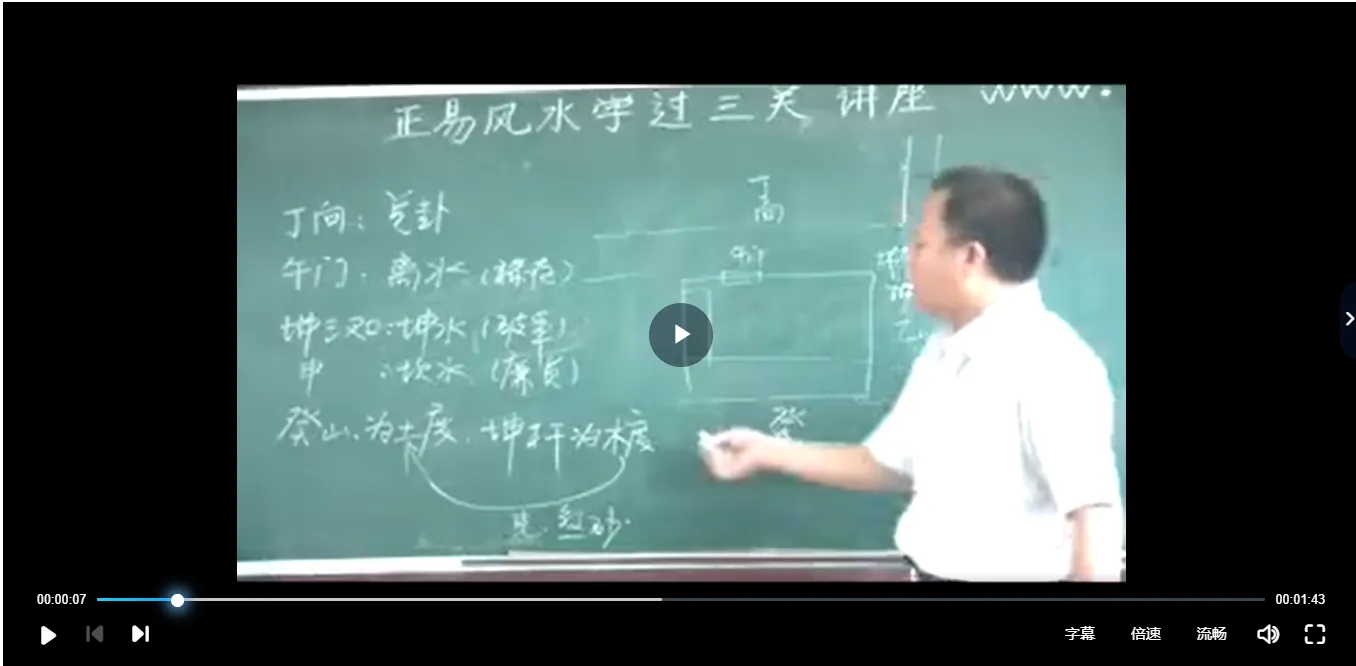 正易风水学过三关 讲座 www.
丁向：兑卦
午门：离水（禄存）
坤三叉口：坤水（破军）
申 ：坎水（廉贞）
癸山为土度、坤杆为木度
煞
丁
向
癸
乙
00:00:07
00:01:43
字幕 倍速 流畅